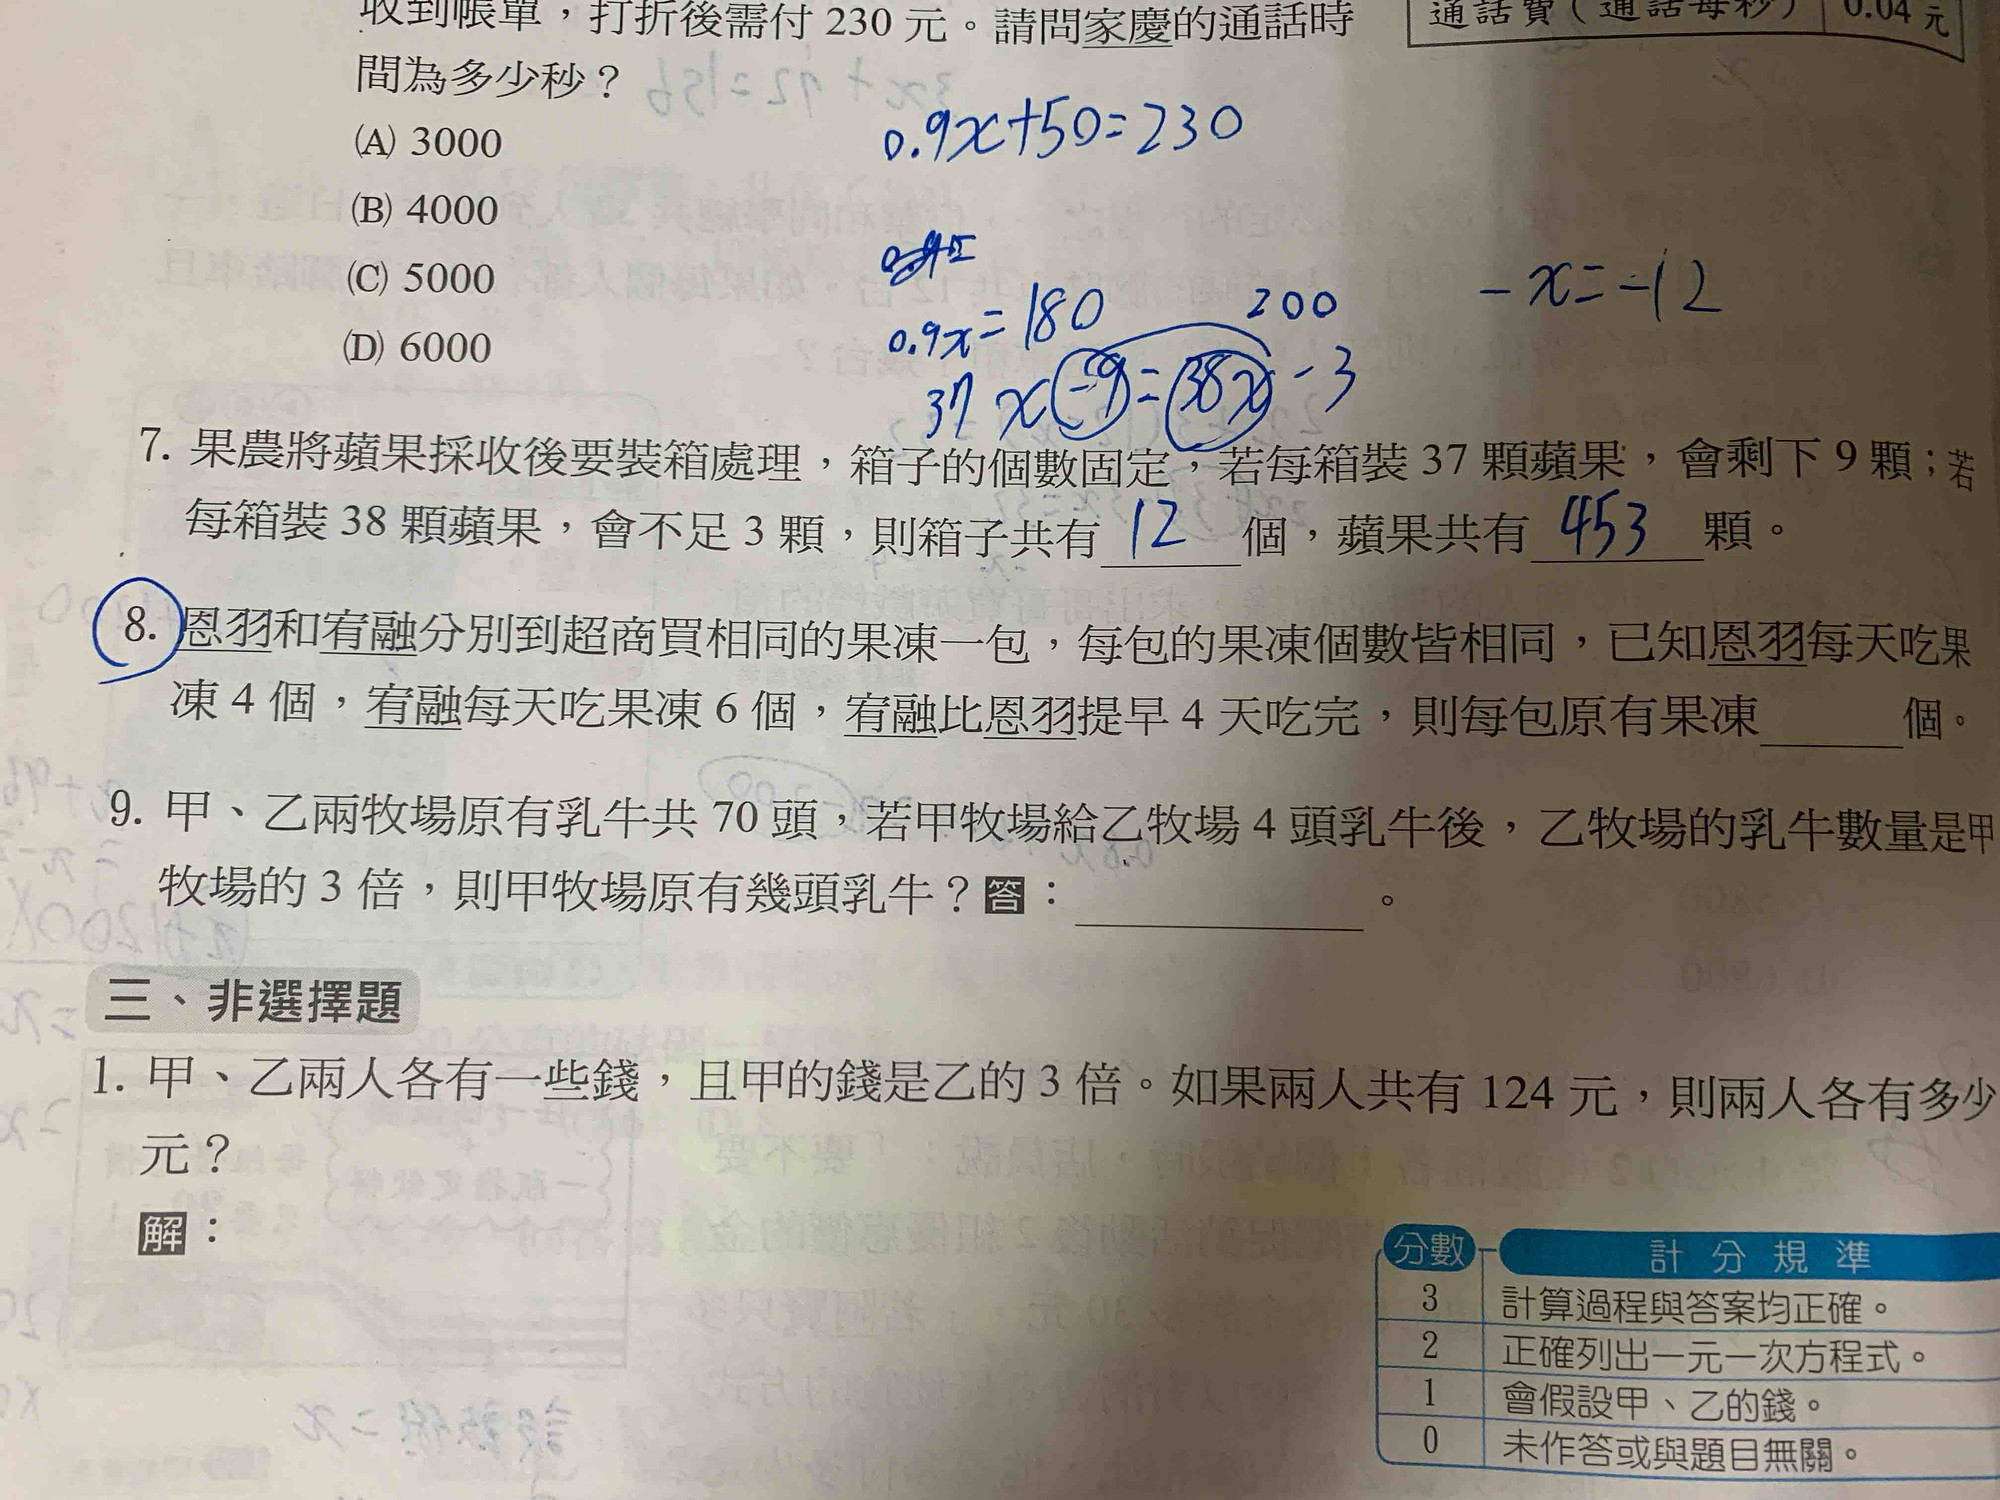 收到帳單，打折後需付 230 元。請問家慶的通話時
間為多少秒？
通話費（通話每秒） 0.04 元
(A) 3000
(B) 4000
(C) 5000
(D) 6000
0.9x+50=230
0.9x=180
200
-x=-12
37x-9=38x-3
7. 果農將蘋果採收後要裝箱處理，箱子的個數固定，若每箱裝 37 顆蘋果，會剩下 9 顆；若
每箱裝 38 顆蘋果，會不足 3 顆，則箱子共有 12 個，蘋果共有 453 顆。
8. 恩羽和宥融分別到超商買相同的果凍一包，每包的果凍個數皆相同，已知恩羽每天吃果
凍 4 個，宥融每天吃果凍 6 個，宥融比恩羽提早 4 天吃完，則每包原有果凍______個。
9. 甲、乙兩牧場原有乳牛共 70 頭，若甲牧場給乙牧場 4 頭乳牛後，乙牧場的乳牛數量是甲
牧場的 3 倍，則甲牧場原有幾頭乳牛？答：____________。
三、非選擇題
1. 甲、乙兩人各有一些錢，且甲的錢是乙的 3 倍。如果兩人共有 124 元，則兩人各有多少
元？
解：
分數 計分規準
3 計算過程與答案均正確。
2 正確列出一元一次方程式。
1 會假設甲、乙的錢。
0 未作答或與題目無關。